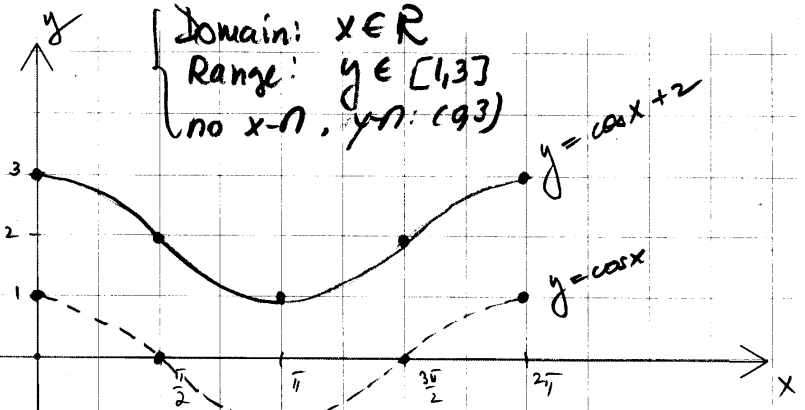 y
Domain: x ∈ R
Range: y ∈ [1,3]
no x-∩, y-∩: (0,3)
y = cosx + 2
3
2
1
y = cosx
π/2
π
3π/2
2π
x